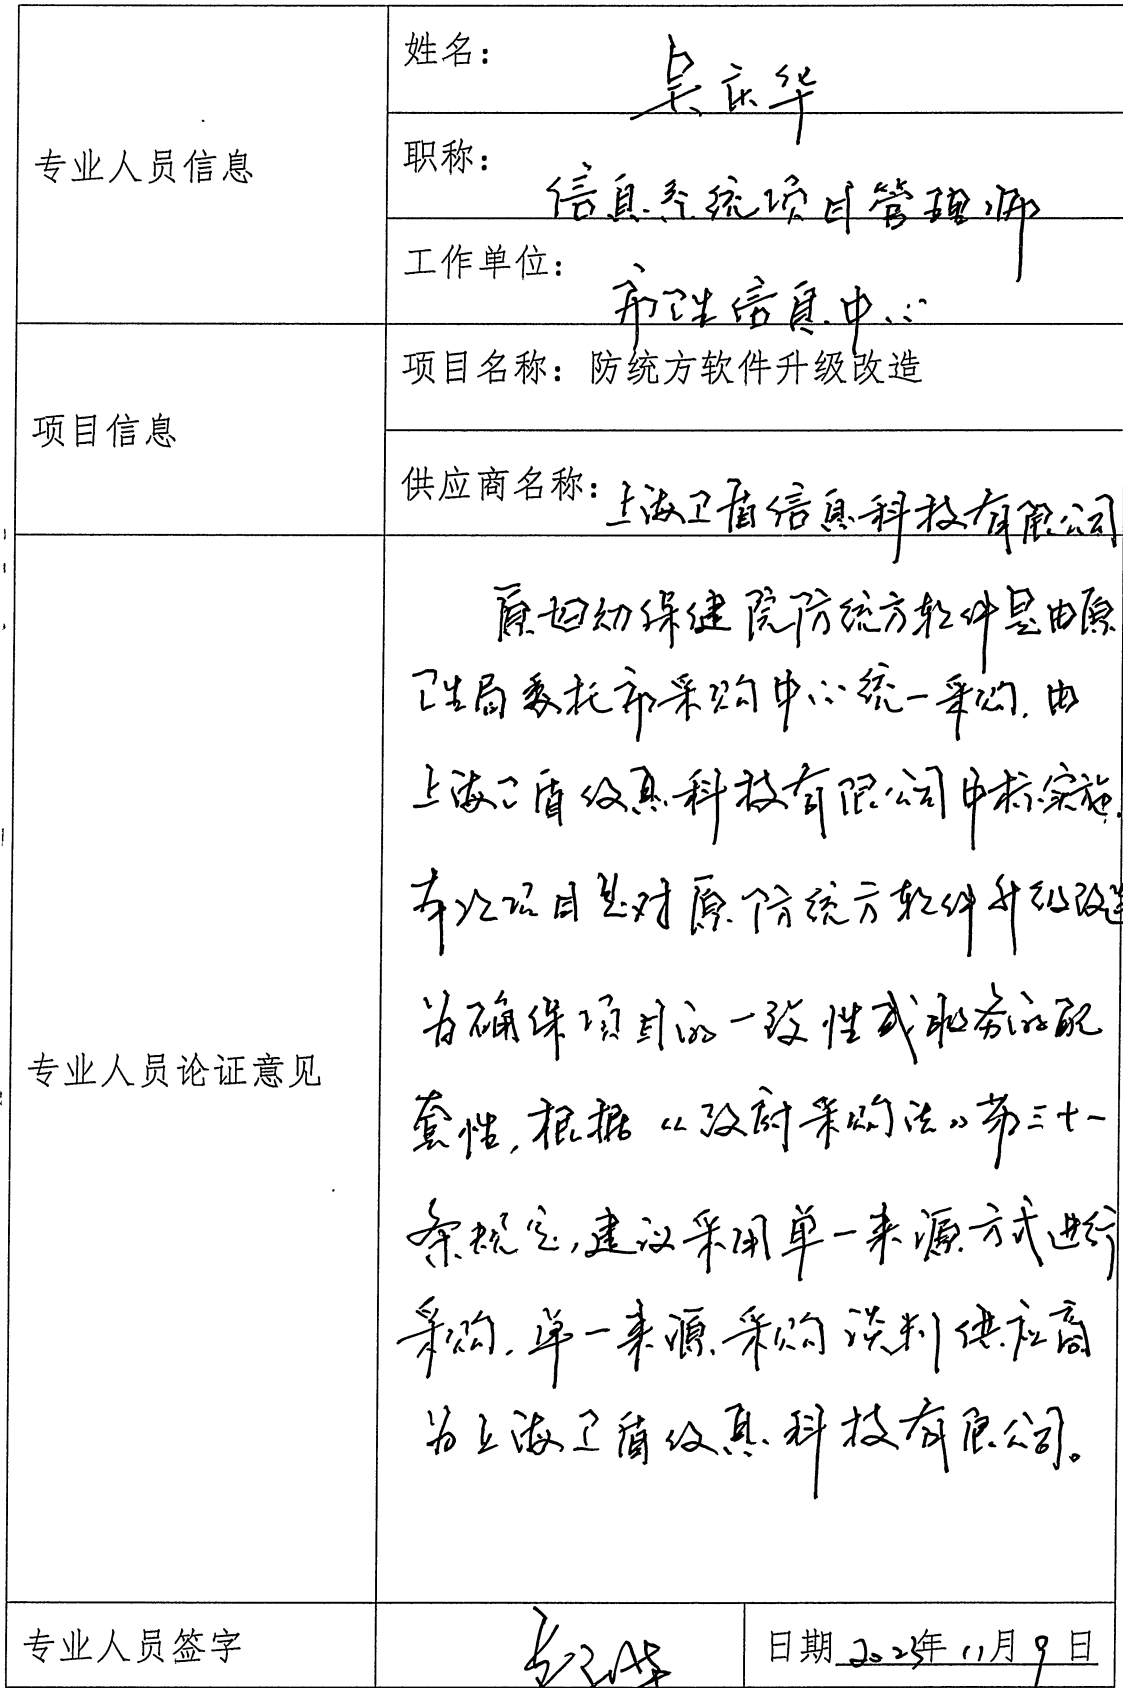 专业人员信息
姓名：
吴庆华
职称：
信息系统项目管理师
工作单位：
市卫生信息中心
项目信息
项目名称：防统方软件升级改造
供应商名称：上海卫盾信息科技有限公司
专业人员论证意见
原妇幼保健院防统方软件是由原
卫生局委托市采购中心统一采购，由
上海卫盾信息科技有限公司中标实施，
本次项目是对原防统方软件升级改造
为确保项目的一致性或服务的配
套性，根据《政府采购法》第三十一
条规定，建议采用单一来源方式进行
采购，单一来源采购谈判供应商
为上海卫盾信息科技有限公司。
专业人员签字
吴庆华
日期2023年11月9日